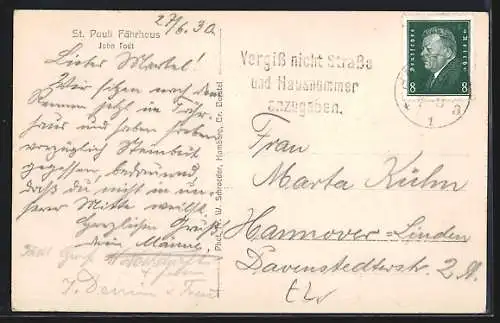 27/6.30
St. Pauli Fährhaus
John Todt
Lieber Martel!
Wir sitzen nach dem
Rennen jetzt im Fähr-
haus und haben soeben
vorzüglich Steinbutt
gegessen, bedauernd,
daß du nicht in un-
serer Mitte weilst.
Herzlichen Gruß
dein
Phot. F. W. Schroeder, Hamburg, Gr. Burstel
Vergiß nicht Straße
und Hausnummer
anzugeben.
Deutsches Reich
8 8
Frau
Marta Kühn
Hannover-Linden
Davenstedterstr. 2